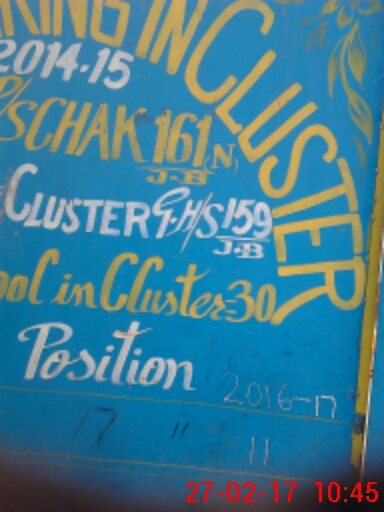 KING IN CLUSTER
2014-15
P/S CHAK 161 (N)
J-B
CLUSTER G-H/S 159
J-B
ool in Cluster=30
Position 2016-17
17 " 11
27-02-17 10:45